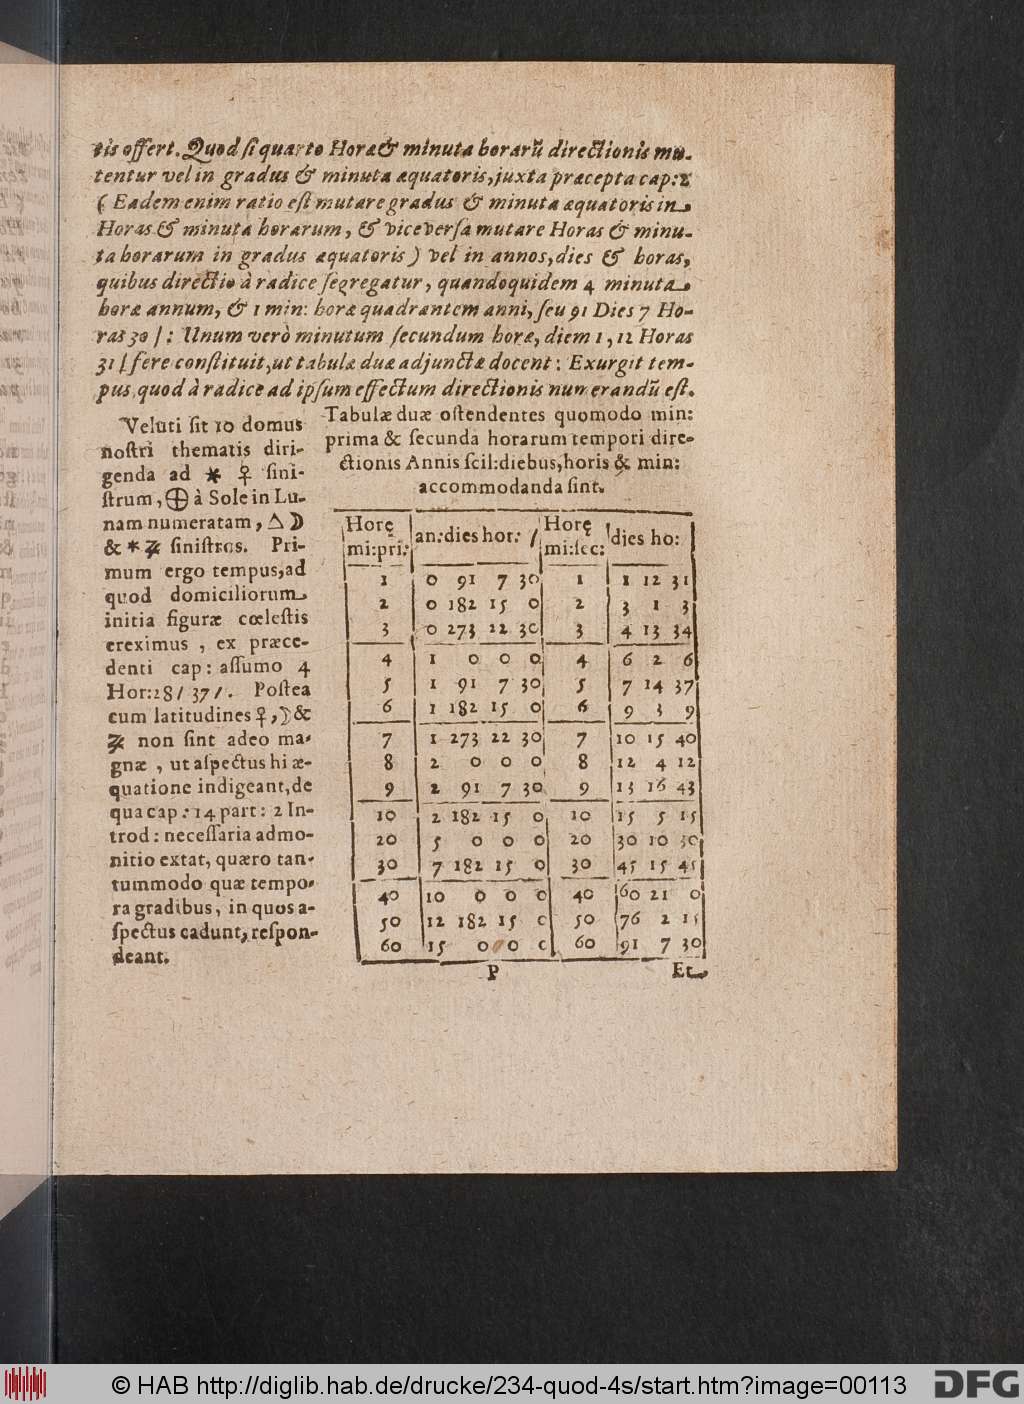 tis offert. Quod si quarto Horæ & minuta horarũ directionis mu-
tentur vel in gradus & minuta æquatoris, juxta præcepta cap: 2
( Eadem enim ratio est mutare gradus & minuta æquatoris in
Horas & minuta horarum, & viceversa mutare Horas & minu-
ta horarum in gradus æquatoris ) vel in annos, dies & horas,
quibus directio à radice segregatur, quandoquidem 4 minuta
horæ annum, & 1 min: horæ quadrantem anni, seu 91 Dies 7 Ho-
ras 30 /: Unum verò minutum secundum horæ, diem 1, 12 Horas
31 / fere constituit, ut tabulæ duæ adjunctæ docent: Exurgit tem-
pus quod à radice ad ipsum effectum directionis numerandũ est.
Veluti sit 10 domus
nostri thematis diri-
genda ad ⚹ ♀ sini-
strum, ⊕ à Sole in Lu-
nam numeratam, △ ☽
& ⚹ ♃ sinistros. Pri-
mum ergo tempus, ad
quod domiciliorum
initia figuræ cœlestis
ereximus, ex præce-
denti cap: assumo 4
Hor: 28 / 37 /. Postea
cum latitudines ♀, ☽ &
♃ non sint adeo ma-
gnæ, ut aspectus hi æ-
quatione indigeant, de
qua cap: 14 part: 2 In-
trod: necessaria admo-
nitio extat, quæro tan-
tummodo quæ tempo-
ra gradibus, in quos a-
spectus cadunt, respon-
deant.
Tabulæ duæ ostendentes quomodo min:
prima & secunda horarum tempori dire-
ctionis Annis scil: diebus, horis & min:
accommodanda sint.
Horę mi: pri: | an: dies hor: / | Horę mi: sec: | dies ho:
1 | 0 91 7 30 | 1 | 1 12 31
2 | 0 182 15 0 | 2 | 3 1 3
3 | 0 273 22 30 | 3 | 4 13 34
4 | 1 0 0 0 | 4 | 6 2 6
5 | 1 91 7 30 | 5 | 7 14 37
6 | 1 182 15 0 | 6 | 9 3 9
7 | 1 273 22 30 | 7 | 10 15 40
8 | 2 0 0 0 | 8 | 12 4 12
9 | 2 91 7 30 | 9 | 13 16 43
10 | 2 182 15 0 | 10 | 15 5 15
20 | 5 0 0 0 | 20 | 30 10 30
30 | 7 182 15 0 | 30 | 45 15 45
40 | 10 0 0 0 | 40 | 60 21 0
50 | 12 182 15 0 | 50 | 76 2 15
60 | 15 0 0 0 | 60 | 91 7 30
P Et
© HAB http://diglib.hab.de/drucke/234-quod-4s/start.htm?image=00113
DFG